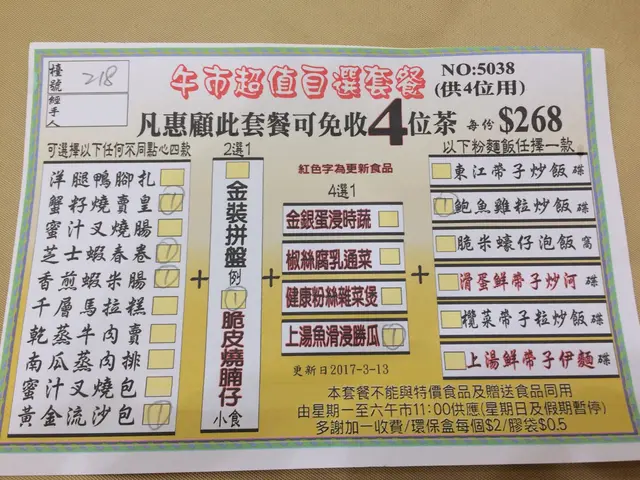 檯號 218
經手人
午市超值自選套餐
NO:5038
(供4位用)
凡惠顧此套餐可免收4位茶 每份 $268
可選擇以下任何不同點心四款
洋腿鴨腳扎
蟹籽燒賣皇 1
蜜汁叉燒腸
芝士蝦春卷 1
香煎蝦米腸 1
千層馬拉糕
乾蒸牛肉賣
南瓜蒸肉排
蜜汁叉燒包
黃金流沙包 1
+
2選1
金裝拼盤 例
1 脆皮燒腩仔 小食
+
紅色字為更新食品
4選1
金銀蛋浸時蔬
椒絲腐乳通菜
健康粉絲雜菜煲
上湯魚滑浸勝瓜 1
更新日2017-3-13
+
以下粉麵飯任擇一款
東江帶子炒飯 碟
1 鮑魚雞粒炒飯 碟
脆米蠔仔泡飯 窩
滑蛋鮮帶子炒河 碟
欖菜帶子粒炒飯 碟
上湯鮮帶子伊麵 碟
本套餐不能與特價食品及贈送食品同用
由星期一至六午市11:00供應(星期日及假期暫停)
多謝加一收費/環保盒每個$2/膠袋$0.5